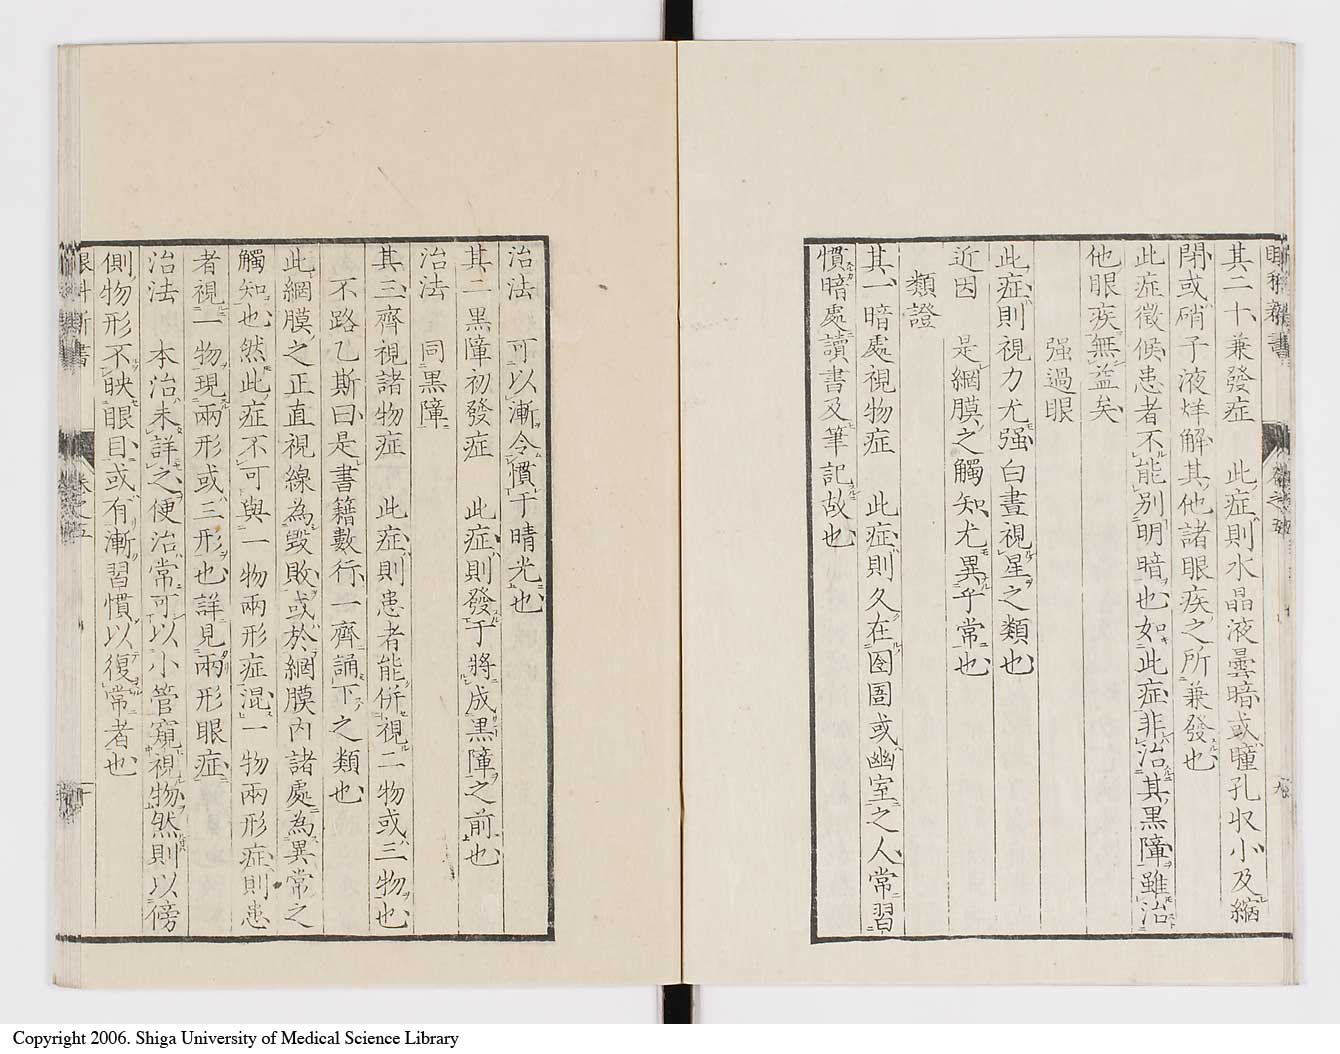 其二十兼發症　此症則水晶液曇暗或瞳孔收小及縮
閉或硝子液烊解其他諸眼疾之所兼發也
此症徵候患者不能別明暗也如此症非治其黒障雖治
他眼疾無益矣
强過眼
此症則視力尤强白晝視星之類也
近因　是網膜之觸知尤異乎常也
類證
其一暗處視物症　此症則久在囹圄或幽室之人常習
慣暗處讀書及筆記故也
治法　可以漸令慣于晴光也
其二黒障初發症　此症則發于將成黒障之前也
治法　同黒障
其三齊視諸物症　此症則患者能併視二物或三物也
不路乙斯曰是書籍數行一齊誦下之類也
此網膜之正直視線為毀敗或於網膜内諸處為異常之
觸知也然此症不可與一物兩形症混一物兩形症則患
者視一物現兩形或三形也詳見兩形眼症
治法　本治未詳之便治常可以小管窺視物然則以傍
側物形不映眼目或有漸習慣以復常者也
眼科新書
卷之五
十
Copyright 2006. Shiga University of Medical Science Library